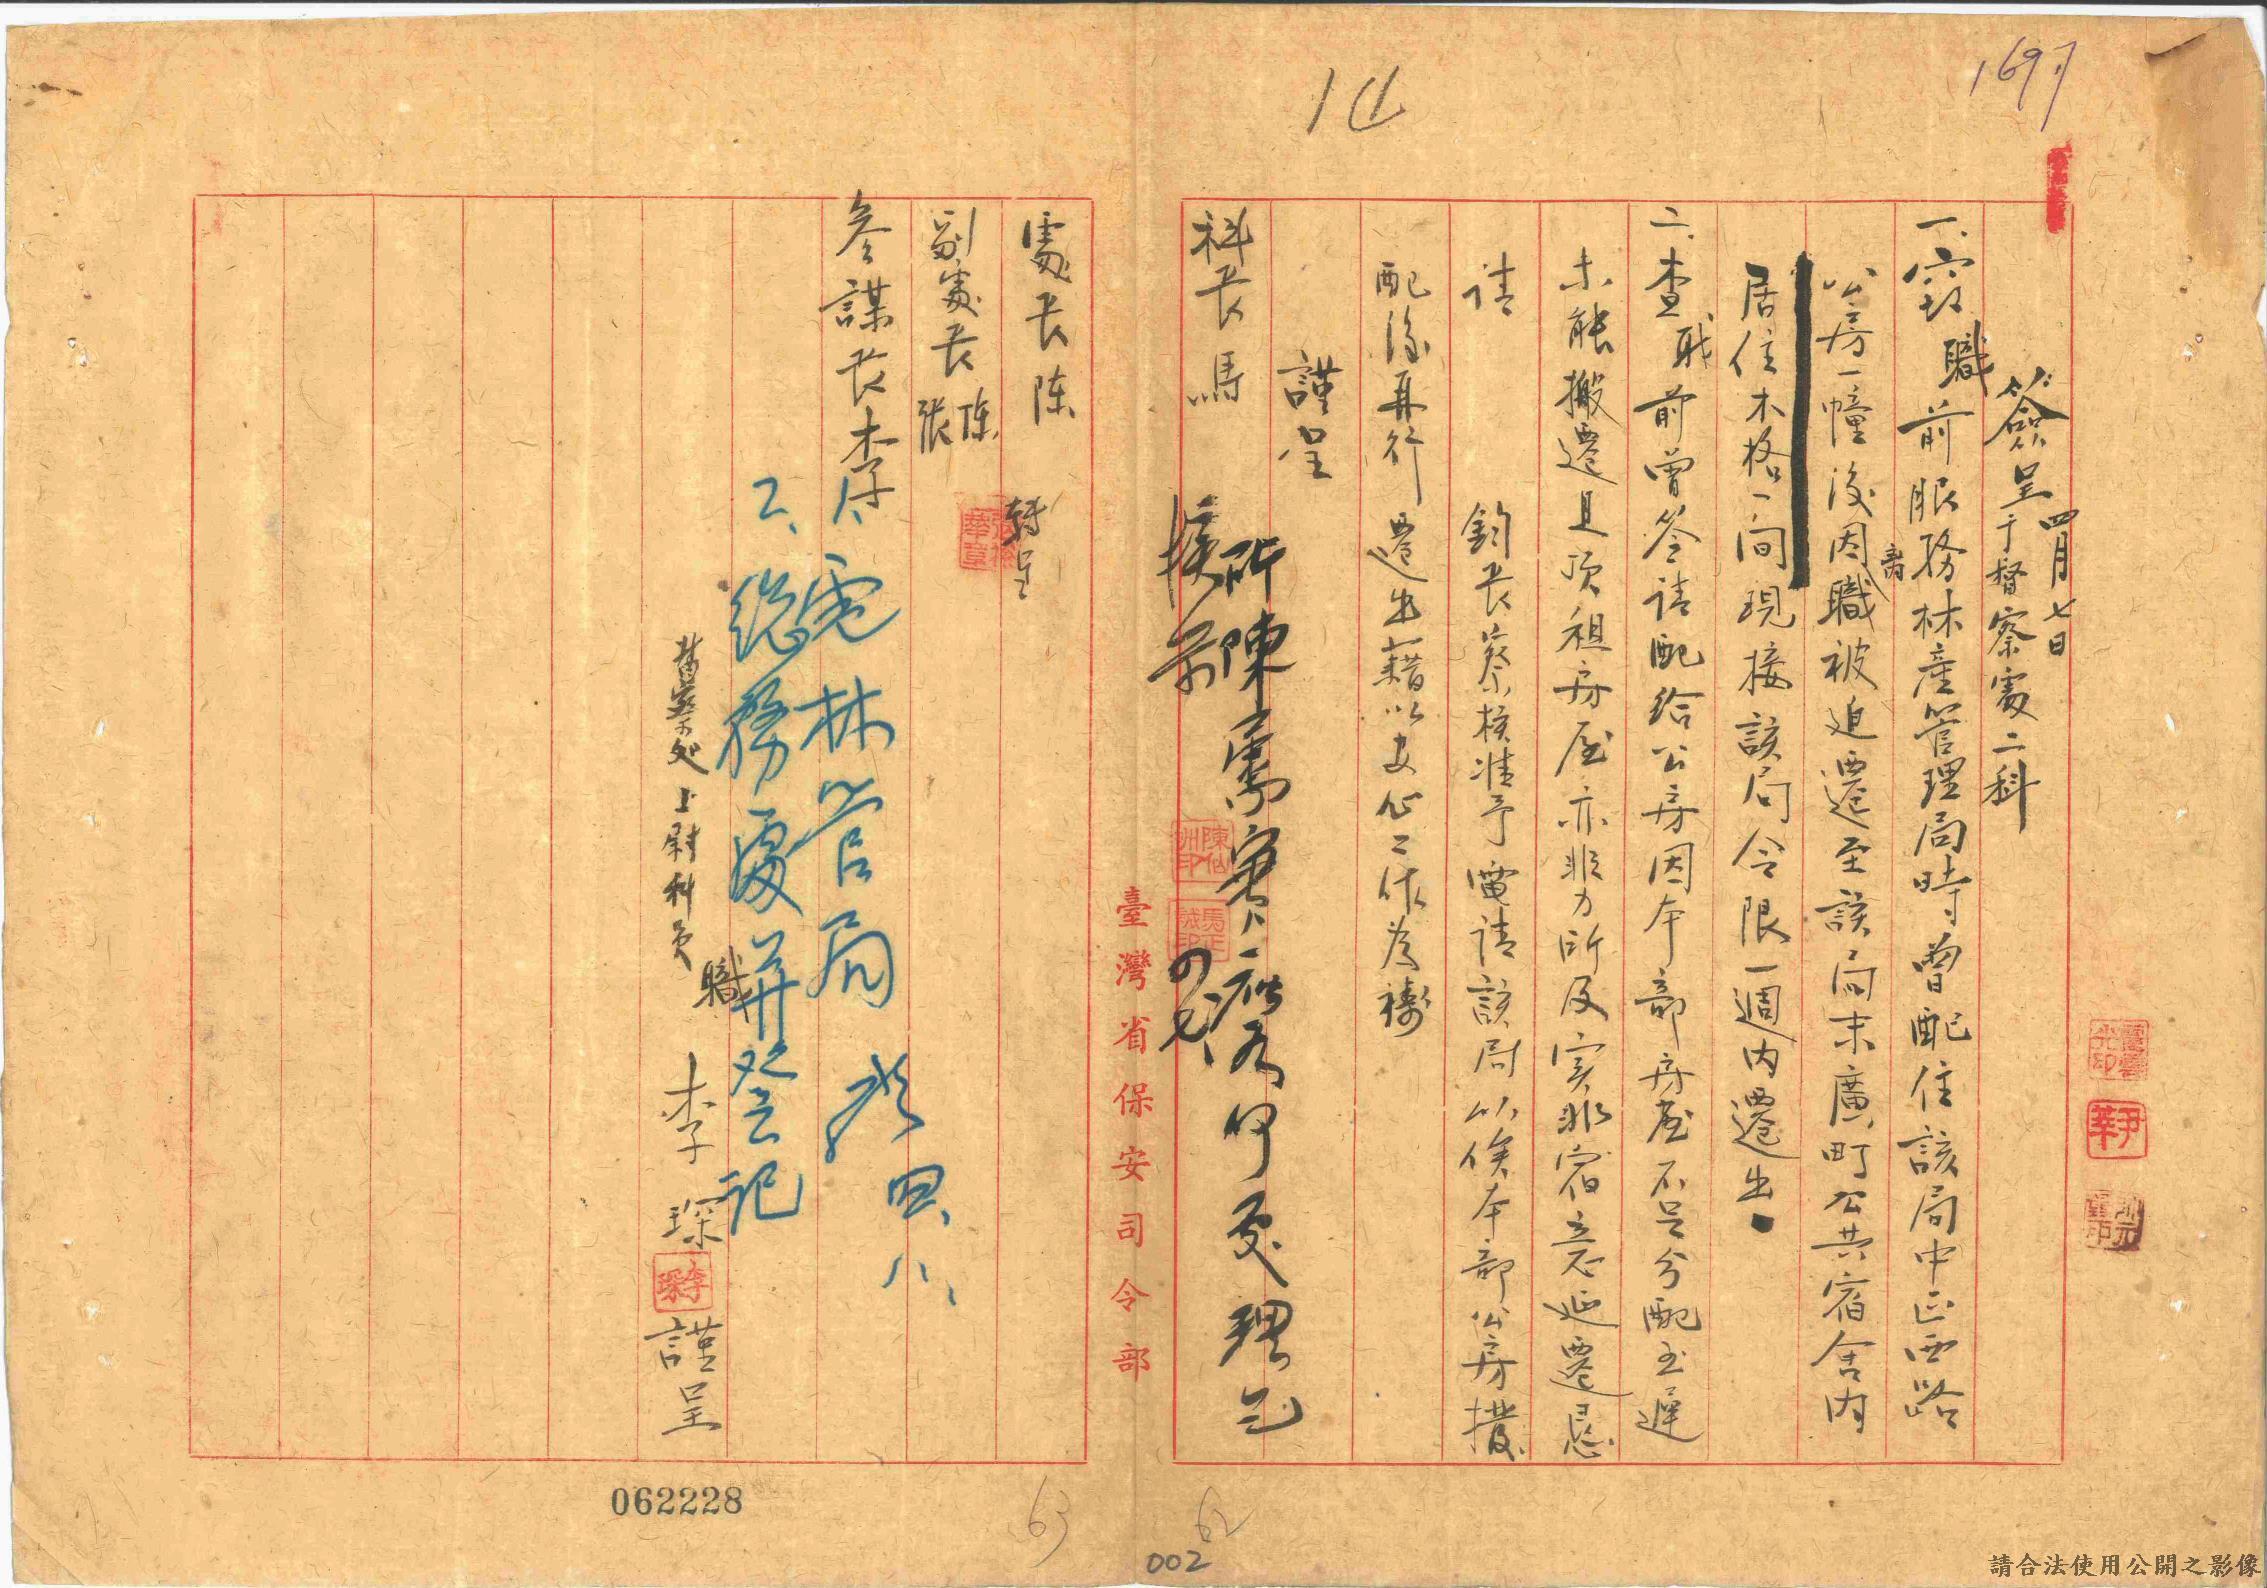 1697
14
簽呈 四月七日
于督察處二科
一、竊職前服務林產管理局時曾配住該局中正西路
公房一幢後因離職被迫遷至該局末廣町公共宿舍內
居住木格一間現接該局令限一週內遷出
二、查職前曾簽請配給公房因本部房屋不足分配至遲
未能搬遷且頂租房屋亦非力所及实非宿意延遷懇
請
鈞長察核准予電請該局以俟本部公房撥
配後再行遷出藉以安心工作為禱
謹呈
科長馬
所陳屬實應如何處理乞
核示
四、七、
陳仙洲印
馬正誠印
臺灣省保安司令部
處長陳 轉呈
副處長陳張
參謀長李
1、電林管局
2、總務處并登記
四、八、
督察处上尉科員職 李琛 謹呈
李琛
尹華
062228
63
62
002
請合法使用公開之影像